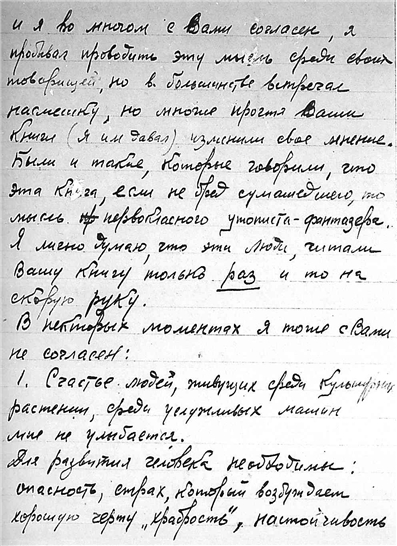 и я во многом с Вами согласен, я
пробывал проводить эту мысль среди своих
товарищей, но в большинстве встречал
насмешку, но многие прочтя Ваши
книги (я им давал) изменили свое мнение.
Были и такие, которые говорили, что
эта книга, если не бред сумашедшего, то
мысль первокласного утописта-фантазера.
Я лично думаю, что эти люди, читали
Вашу книгу только раз и то на
скорую руку.
В некоторых моментах я тоже с Вами
не согласен:
1. Счастье людей, живущих среди культурных
растении, среди услужливых машин
мне не улыбается.
Для развития человека необходимы:
опасность, страх, который возбуждаем
хорошую черту „храбрость", настойчивость